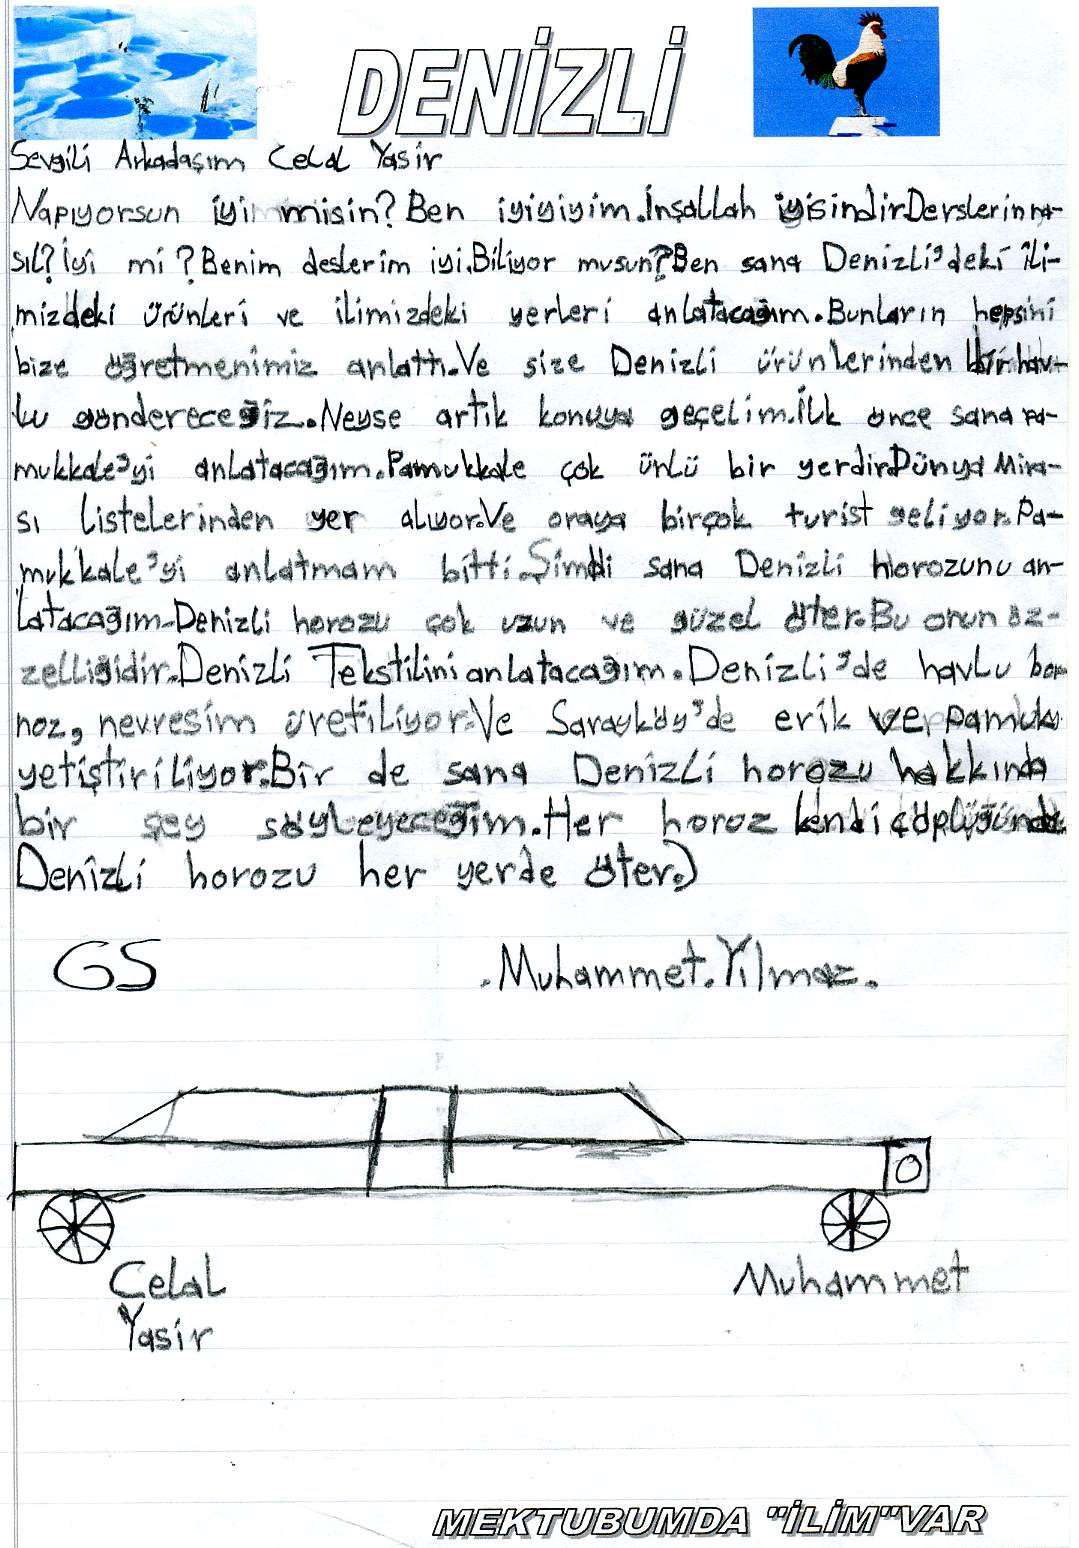 DENİZLİ
Sevgili Arkadaşım Celal Yasir
Napıyorsun iyi misin? Ben iyiyiyim.İnşallah iyisindir.Derslerin na-
sıl? İyi mi? Benim deslerim iyi.Biliyor musun? Ben sana Denizli'deki ili-
mizdeki ürünleri ve ilimizdeki yerleri anlatacağım.Bunların hepsini
bize öğretmenimiz anlattı.Ve size Denizli ürünlerinden bir hav-
lu göndereceğiz.Neyse artık konuya geçelim.İlk önce sana Pa-
mukkale'yi anlatacağım.Pamukkale çok ünlü bir yerdir.Dünya Mira-
sı listelerinden yer alıyor.Ve oraya birçok turist geliyor.Pa-
mukkale'yi anlatmam bitti.Şimdi sana Denizli horozunu an-
latacağım.Denizli horozu çok uzun ve güzel öter.Bu onun öz-
zelliğidir.Denizli Tekstilini anlatacağım.Denizli'de havlu bor
noz, nevresim üretiliyor.Ve Sarayköy'de erik ve pamuk
yetiştiriliyor.Bir de sana Denizli horozu hakkında
bir şey söyleyeceğim.Her horoz kendi çöplüğünde
Denizli horozu her yerde öter.)
GS .Muhammet.Yılmaz.
Celal Muhammet
Yasir
MEKTUBUMDA "İLİM"VAR